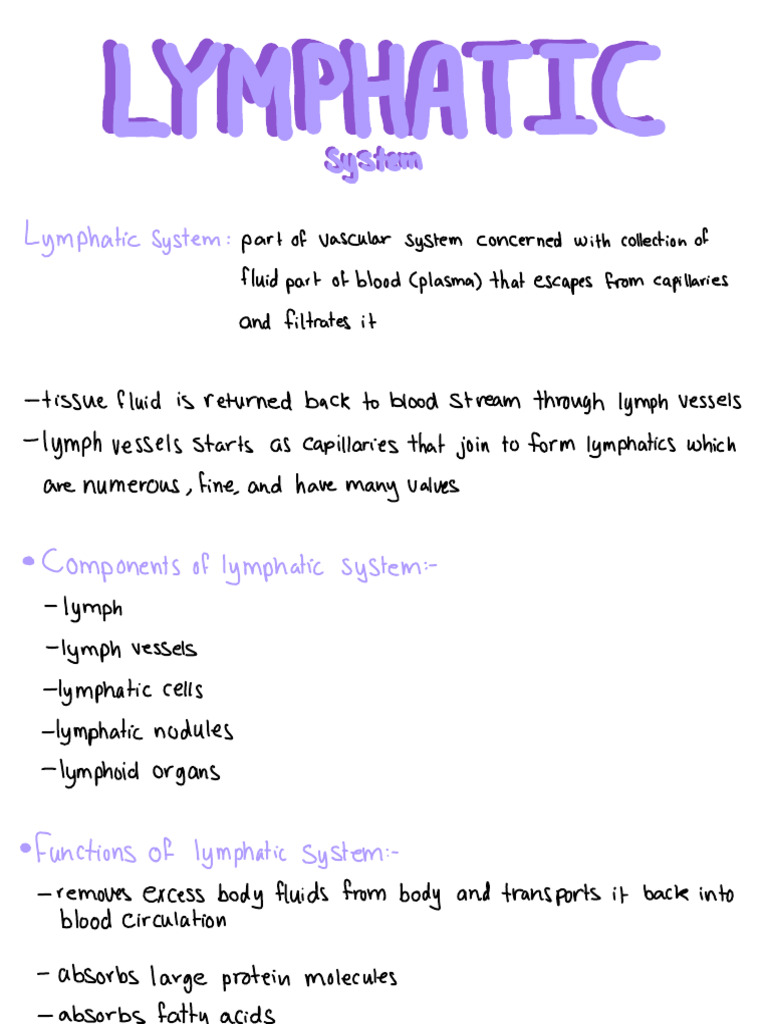 LYMPHATIC
system
Lymphatic System: part of vascular system concerned with collection of
fluid part of blood (plasma) that escapes from capillaries
and filtrates it
-tissue fluid is returned back to blood stream through lymph vessels
-lymph vessels starts as capillaries that join to form lymphatics which
are numerous, fine, and have many valves
• Components of lymphatic system:-
-lymph
-lymph vessels
-lymphatic cells
-lymphatic nodules
-lymphoid organs
• Functions of lymphatic system:-
-removes excess body fluids from body and transports it back into
blood circulation
- absorbs large protein molecules
- absorbs fatty acids